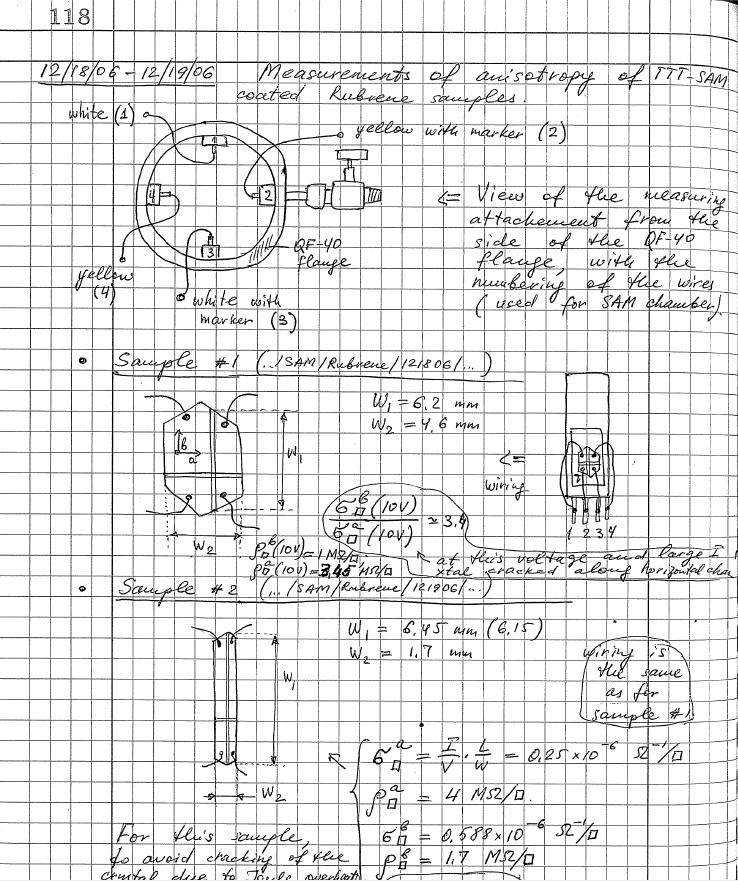 118
12/18/06 - 12/19/06 Measurements of anisotropy of TTT-SAM
coated Rubrene samples.
white (1)
yellow with marker (2)
1
4
2
3
QF-40
flange
yellow
(4)
white with
marker (3)
<= View of the measuring
attachement from the
side of the QF-40
flange, with the
numbering of the wires
(used for SAM chamber).
• Sample #1 (../SAM/Rubrene/121806/...)
W₁ = 6.2 mm
W₂ = 4.6 mm
b
a
W₁
W₂
<=
wiring
1 2 3 4
σ□ᵇ (10V)
σ□ᵃ (10V) ≃ 3.4
ρ□ᵇ(10V) = 1 MΩ/□
ρ□ᵃ(10V) = 3.45 MΩ/□
at this voltage and large I
xtal cracked along horizontal chan
• Sample #2 (.../SAM/Rubrene/121906/...)
W₁ = 6.45 mm (6.15)
W₂ = 1.7 mm
wiring is
the same
as for
sample #1
W₁
W₂
σ□ᵃ = I/V · L/W = 0.25 × 10⁻⁶ Ω⁻¹/□
ρ□ᵃ = 4 MΩ/□.
σ□ᵇ = 0.588 × 10⁻⁶ Ω⁻¹/□
ρ□ᵇ = 1.7 MΩ/□
For this sample,
to avoid cracking of the
crystal due to Joule